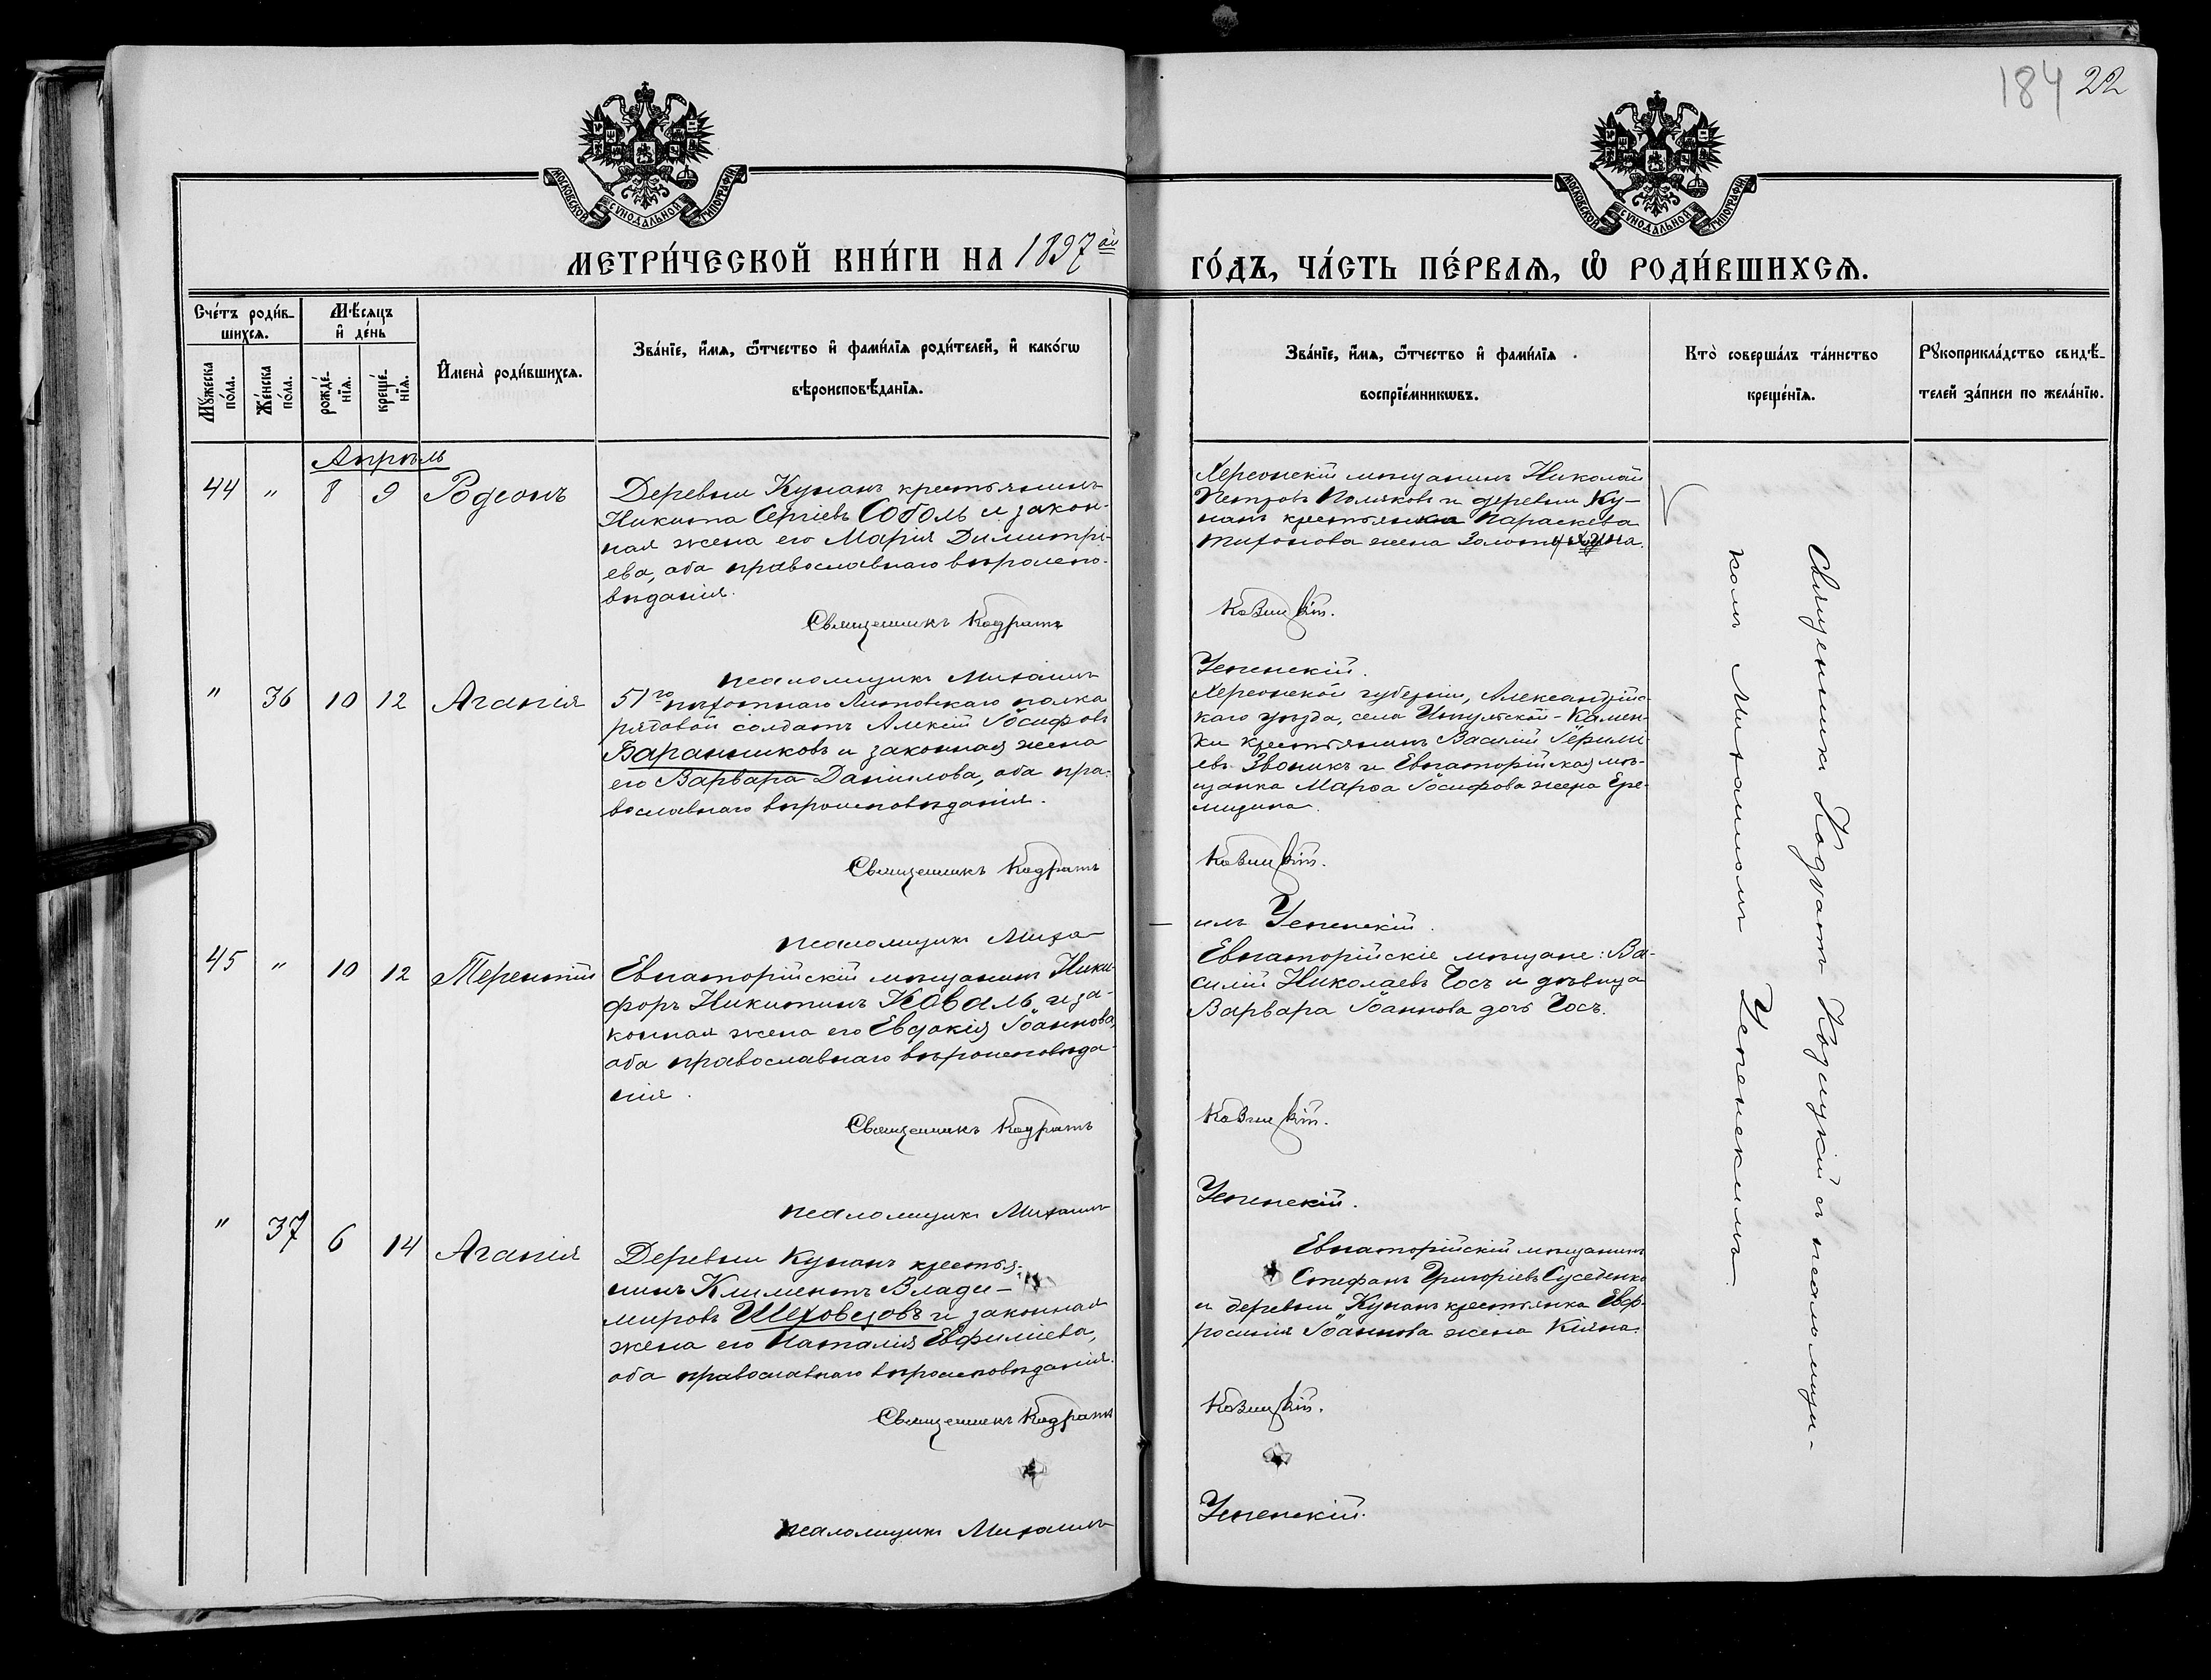 184 22
МОСКОВСКОЙ СѴНОДАЛЬНОЙ ТИПОГРАФІИ
МОСКОВСКОЙ СѴНОДАЛЬНОЙ ТИПОГРАФІИ
МЕТРИ́ЧЕСКОЙ КНИ́ГИ НА 1897ой
ГО́ДЪ, ЧА́СТЬ ПЕ́РВАѦ, Ѡ҆ РОДИ́ВШИХСѦ.
Сче́тъ роди́в-
шихсѧ.
Мѣ́сѧцъ
и҆ де́нь
Мꙋ́жеска по́ла.
Же́нска по́ла.
рожде́-
нїѧ.
креще́-
нїѧ.
И҆мена̀ роди́вшихсѧ.
Зва́нїе, и҆́мѧ, ѻ҆́тчество и҆ фами́лїѧ роди́телей, и҆ како́гѡ
вѣроисповѣ́данїѧ.
Зва́нїе, и҆́мѧ, ѻ҆́тчество и҆ фами́лїѧ
воспрїе́мникѡвъ.
Кто̀ соверша́лъ та́инство
креще́нїѧ.
Рꙋкоприкла́дство свидѣ́-
телей за́писи по жела́нїю.
Апрѣль
44 " 8 9 Родіонъ
Деревни Кунанъ крестьянинъ
Никита Сергіевъ Соболь и закон-
ная жена его Марія Димитрі-
ева, оба православнаго вѣроиспо-
вѣданія.
Священникъ Кодратъ
псаломщикъ Михаилъ
Херсонскій мѣщанинъ Николай
Петровъ Поляковъ и деревни Ку-
нанъ крестьянка Параскева
Тихонова жена
Козицкій.
Успенскій.
" 36 10 12 Агапія
51го пѣхотнаго Литовскаго полка
рядовой солдатъ Алексій Іосифовъ
Баранниковъ и законная жена
его Варвара Даніилова, оба пра-
вославнаго вѣроисповѣданія.
Священникъ Кодратъ
псаломщикъ Миха-
Херсонской губерніи, Александрійс-
каго уѣзда, села Ингульской-Камен-
ки крестьянинъ Василій
евъ Звоникъ и Евпаторійская мѣ-
щанка Марѳа Іосифова жена Ере-
мицина.
Козицкій.
илъ Успенскій.
45 " 10 12 Терентій
Евпаторійскій мѣщанинъ Ники-
форъ Никитинъ Коваль и за-
конная жена его Евдокія Іоаннова,
оба православнаго вѣроисповѣда-
нія.
Священникъ Кодратъ
псаломщикъ Михаилъ
Евпаторійскіе мѣщане: Ва-
силій Николаевъ Чосъ и дѣвица
Варвара Іоаннова дочь Чосъ.
Козицкій.
Успенскій.
" 37 6 14 Агапія
Деревни Кунанъ крестья-
нинъ Климентъ Влади-
міровъ Шеховцовъ и законная
жена его Наталія Евфиміева,
оба православнаго вѣроисповѣданія.
Священникъ Кодратъ
псаломщикъ Михаилъ
Евпаторійскій мѣщанинъ
Стефанъ Григоріевъ Суседенко
и деревни Кунанъ крестьянка Евф-
росинія Іоаннова жена Кіяна.
Козицкій.
Успенскій.
Священникъ Кодратъ Козицкій съ псаломщи-
комъ Михаиломъ Успенскимъ.